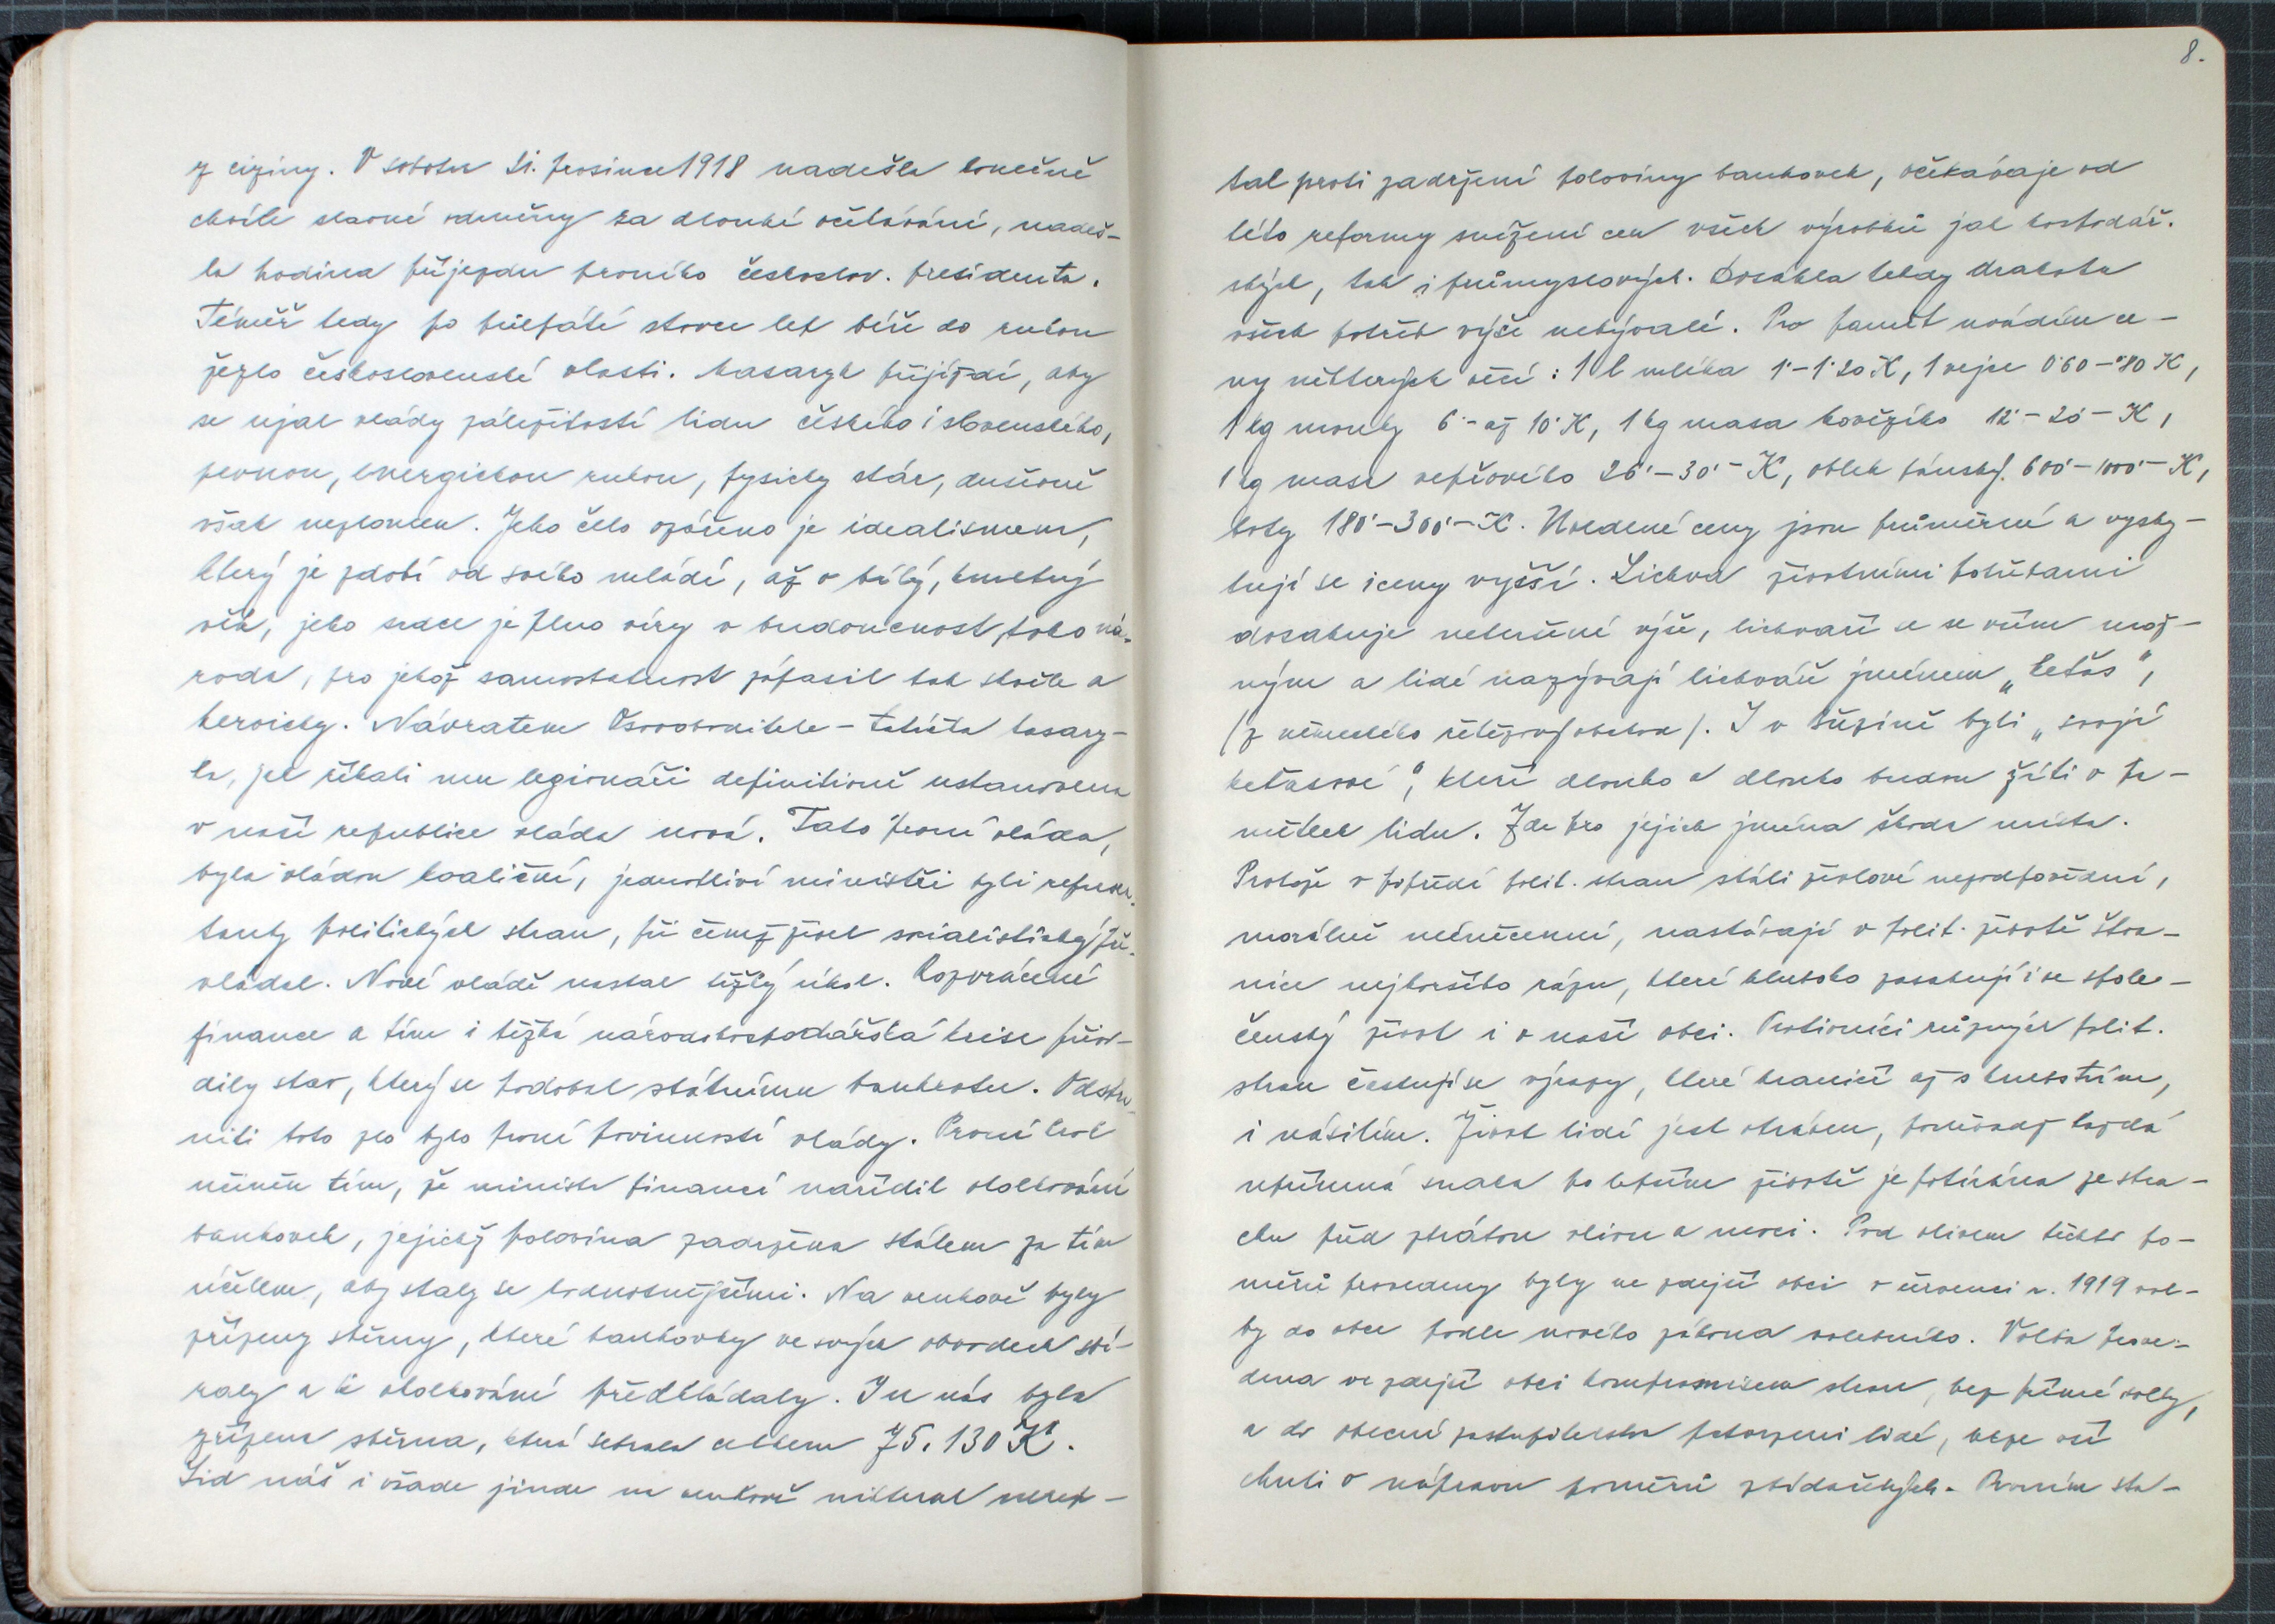 z ciziny. V sobotu 21. prosince 1918 nadešla konečně
chvíle slavné odměny za dlouhé očekávání, nadeš-
la hodina příjezdu prvního českoslov. presidenta.
Téměř tedy po třech stovce let béře do rukou
žezlo československé vlasti. Masaryk přijíždí, aby
se ujal vlády záležitostí lidu českého i slovenského,
pevnou, energickou rukou, fysicky stár, duševně
však nezlomen. Jeho čelo ozářeno je idealismem,
který je zdobí od svého mládí, až v bílý, kmetný
věk, jeho srdce je plno víry v budoucnost toho ná-
roda, pro jehož samostatnost zápasil tak skvěle a
heroicky. Návratem Osvoboditele - tatíčka Masary-
ka, jak říkali mu legionáři definitivně ustanovena
v naší republice vláda nová. Tato první vláda,
byla vládou koaliční, jednotliví ministři byli represen-
tanty politických stran, při čemž živel socialistický pře-
vládal. Nové vládě nastal těžký úkol. Rozvrácené
finance a tím i těžká národohospodářská krise přivo-
dily stav, který se podobal státnímu bankrotu. Odstra-
niti toto zlo bylo první povinností vlády. První krok
učiněn tím, že ministr financí nařídil okolkování
bankovek, jejichž polovina zadržena státem za tím
účelem, aby staly se hodnotnějšími. Na venkově byly
zřízeny sběrny, které bankovky ve svých obvodech sbí-
raly a k okolkování předkládaly. I u nás byla
zřízena sběrna, která sebrala celkem 75.130 K.
Lid náš i všade jinde na venkově nikterak nerep-
8.
tal proti zadržení poloviny bankovek, očekávaje od
této reformy snížení cen všech výrobků jak hospodář-
ských, tak i průmyslových. Dosáhla tehdy drahota
všech potřeb výše nebývalé. Pro paměť uvádím ce-
ny některých věcí: 1 l mléka 1·-1·20 K, 1 vejce 0·60-·80 K,
1 kg mouky 6·- až 10· K, 1 kg masa hovězího 12·-20·- K,
1 kg masa vepřového 26·-30·- K, oblek pánský 600·-1000·- K,
boty 180·-300·- K. Uvedené ceny jsou průměrné a vysky-
tují se i ceny vyšší. Lichva životními potřebami
dosahuje netušené výše, lichvaří se se vším mož-
ným a lidé nazývají lichváře jménem „keťas",
(z německého řetězový obchod). I v Střezině byli „svoji
keťasové", kteří dlouho a dlouho budou žíti v pa-
mětech lidu. Zde pro jejich jména škoda místa.
Protože v popředí polit. stran stáli živlové nezodpovědní,
morálně méněcenní, nastávají v polit. životě štva-
nice nejhoršího rázu, které hluboko zasahují i ve spole-
čenský život i v naší obci. Protivníci různých polit.
stran častují se výrazy, které hraničí až s hrubstvím,
i násilím. Život lidí jest otráven, poněvadž každá
upřímná snaha po lepším životě je potírána ze stra-
chu před ztrátou vlivu a moci. Pod vlivem těchto po-
měrů provedeny byly ve zdejší obci v červenci r. 1919 vol-
by do obce podle nového zákona volebního. Volba prove-
dena ve zdejší obci kompromisem stran, bez přímé volby,
a do obecní zastupitelstva potvrzeni lidé, beze vší
chuti o nápravu poměrů zdědařilých. Prvním sta-